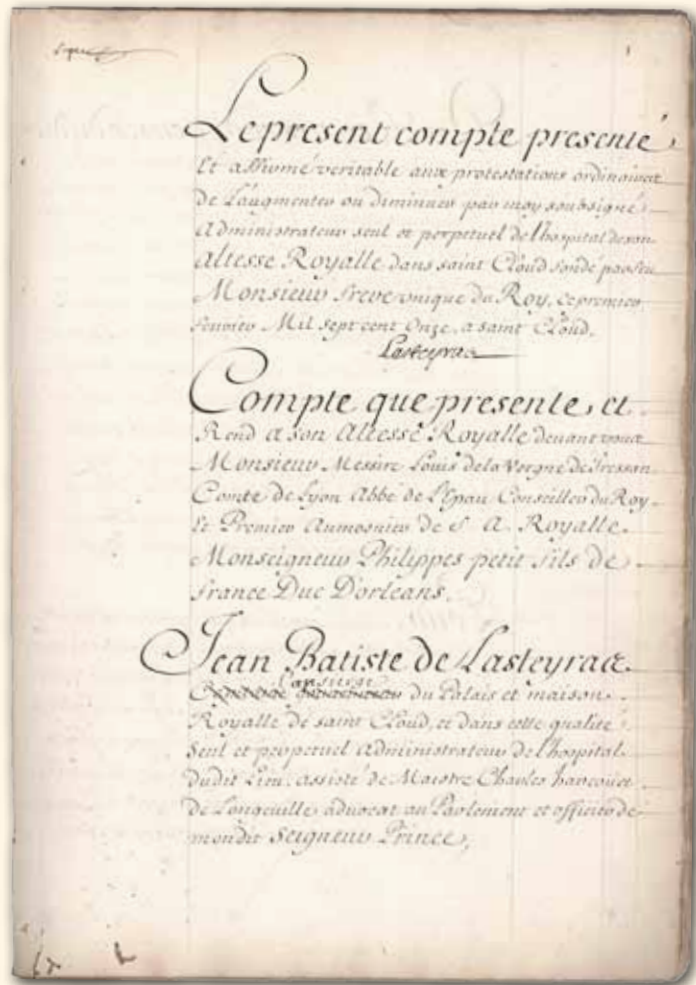 1
Le present compte presenté,
Et affirmé veritable aux protestations ordinaires
de Laugmenter ou diminuer par moy soubsigné
Administrateur seul et perpetuel de l'hospital de son
Altesse Royalle dans saint Cloud fondé par feu
Monsieur frere unique du Roy, ce premier
fevrier Mil sept cent Onze, a saint Cloud.
Lasteyrac
Compte que presente, et
Rend a son Altesse Royalle devant vous
Monsieur Messire Louis dela Vergne de Tressan
Comte de Lyon Abbé de L'Epau Conseiller du Roy
Et Premier Aumosnier de S. A. Royalle
Monseigneur Philippes petit fils de
france Duc D'orleans.
Jean Batiste de Lasteyrac
du Palais et maison
Royalle de saint Cloud, et dans cette qualité
Seul et perpetuel Administrateur de l'hospital
dudit Lieu, assisté de Maistre Charles harcouet
de Longeville advocat au Parlement et officier de
mondit Seigneur Prince,